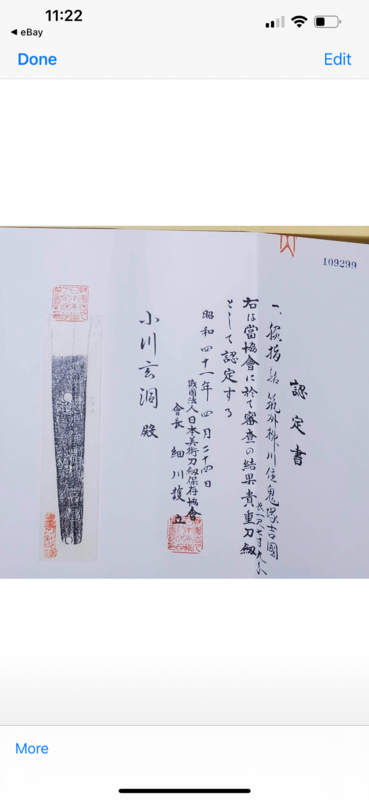 11:22
eBay
Done
Edit
109299
認定書
一、脇指 銘 筑州柳川住鬼塚吉國
右は當協會に於て審査の結果貴重刀劔
として認定する
昭和四十一年四月二十四日
財團法人日本美術刀劔保存協會
會長 細川護立
小川玄洞殿
More